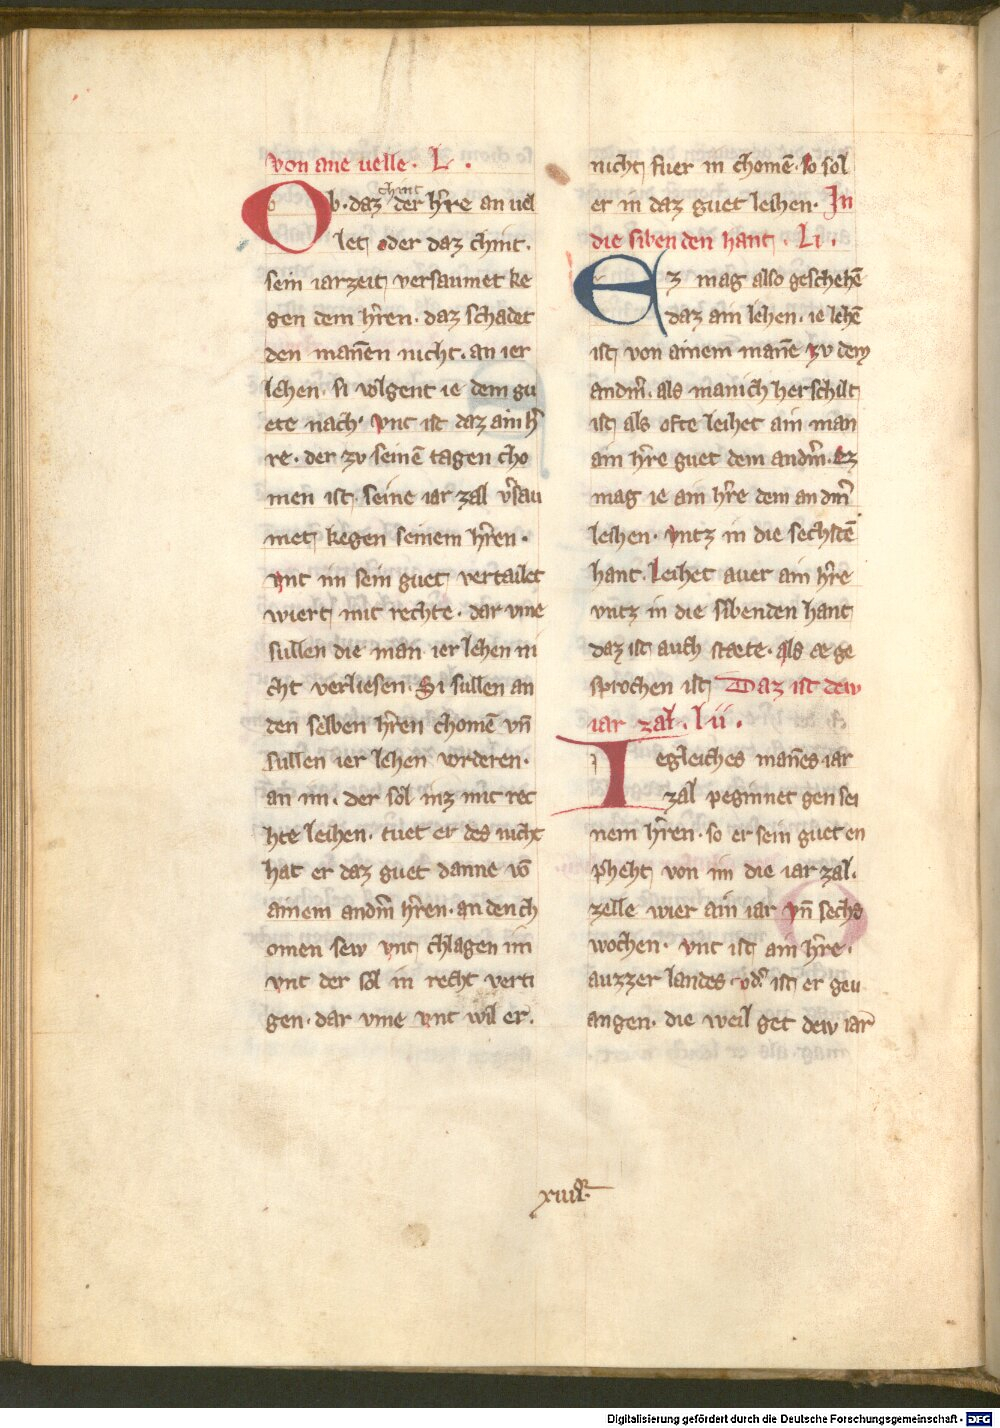 von ane uelle · L ·
Ob · daz chint der hr̄re an uel
let oder daz chint ·
sein iarzeit versaumet ke
gen dem hr̄ren · daz schadet
den mañen nicht · an ier
lehen · si volgent ie dem gu
ete nach · vnt ist daz ain hr̄
re · der zv seinē tagen cho
men ist · seine iar zal v̄sau
met kegen seinem hr̄ren ·
vnt im sein guet vertailet
wiert mit rechte · dar vme
sullen die man ier lehen ni
cht verliesen · Si sullen an
den selben hr̄ren chomē vn̄
sullen ier lehen vorderen ·
an im · der sol inz mit rec
hte leihen · tuet er des nicht
hat er daz guet danne vō
ainem andm̄ hr̄ren · an den ch
omen sew vnt chlagen im
vnt der sol in recht verti
gen · dar vme vnt wil er ·
nicht fuer in chomē · so sol
er in daz guet leihen · In
die sibenden hant · Li ·
Ez mag also geschehē
daz ain lehen · ie lehē
ist von ainem mañe zv dem
andm̄ · als manich herschilt
ist als ofte leihet ain man
ain hr̄re guet dem andm̄ · Ez
mag ie ain hr̄re dem andm̄
leihen · vntz in die sechstē
hant · Leihet auer ain hr̄re
vntz in die sibenden hant
daz ist auch staete · als ee ge
sprochen ist Daz ist dew
iar zal · Lii ·
Iegleiches mañes iar
zal peginnet gen sei
nem hr̄ren · so er sein guet en
pheht von im die iar zal ·
zelle wier ain iar vn̄ sechs
wochen · vnt ist ain hr̄re ·
auzzer landes · vd̄ ist er geu
angen · die weil get dew iar